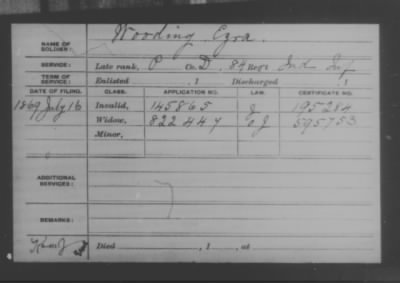 NAME OF SOLDIER: Wooding Ezra.
SERVICE: Late rank, P Co. D, 84 Reg't Ind Inf
TERM OF SERVICE: Enlisted , 1 Discharged , 1
DATE OF FILING. CLASS. APPLICATION NO. LAW. CERTIFICATE NO.
1869 July 16 Invalid, 145865 195284
Widow, 822447 595753
Minor,
ADDITIONAL SERVICES:
REMARKS:
Died , 1 , at